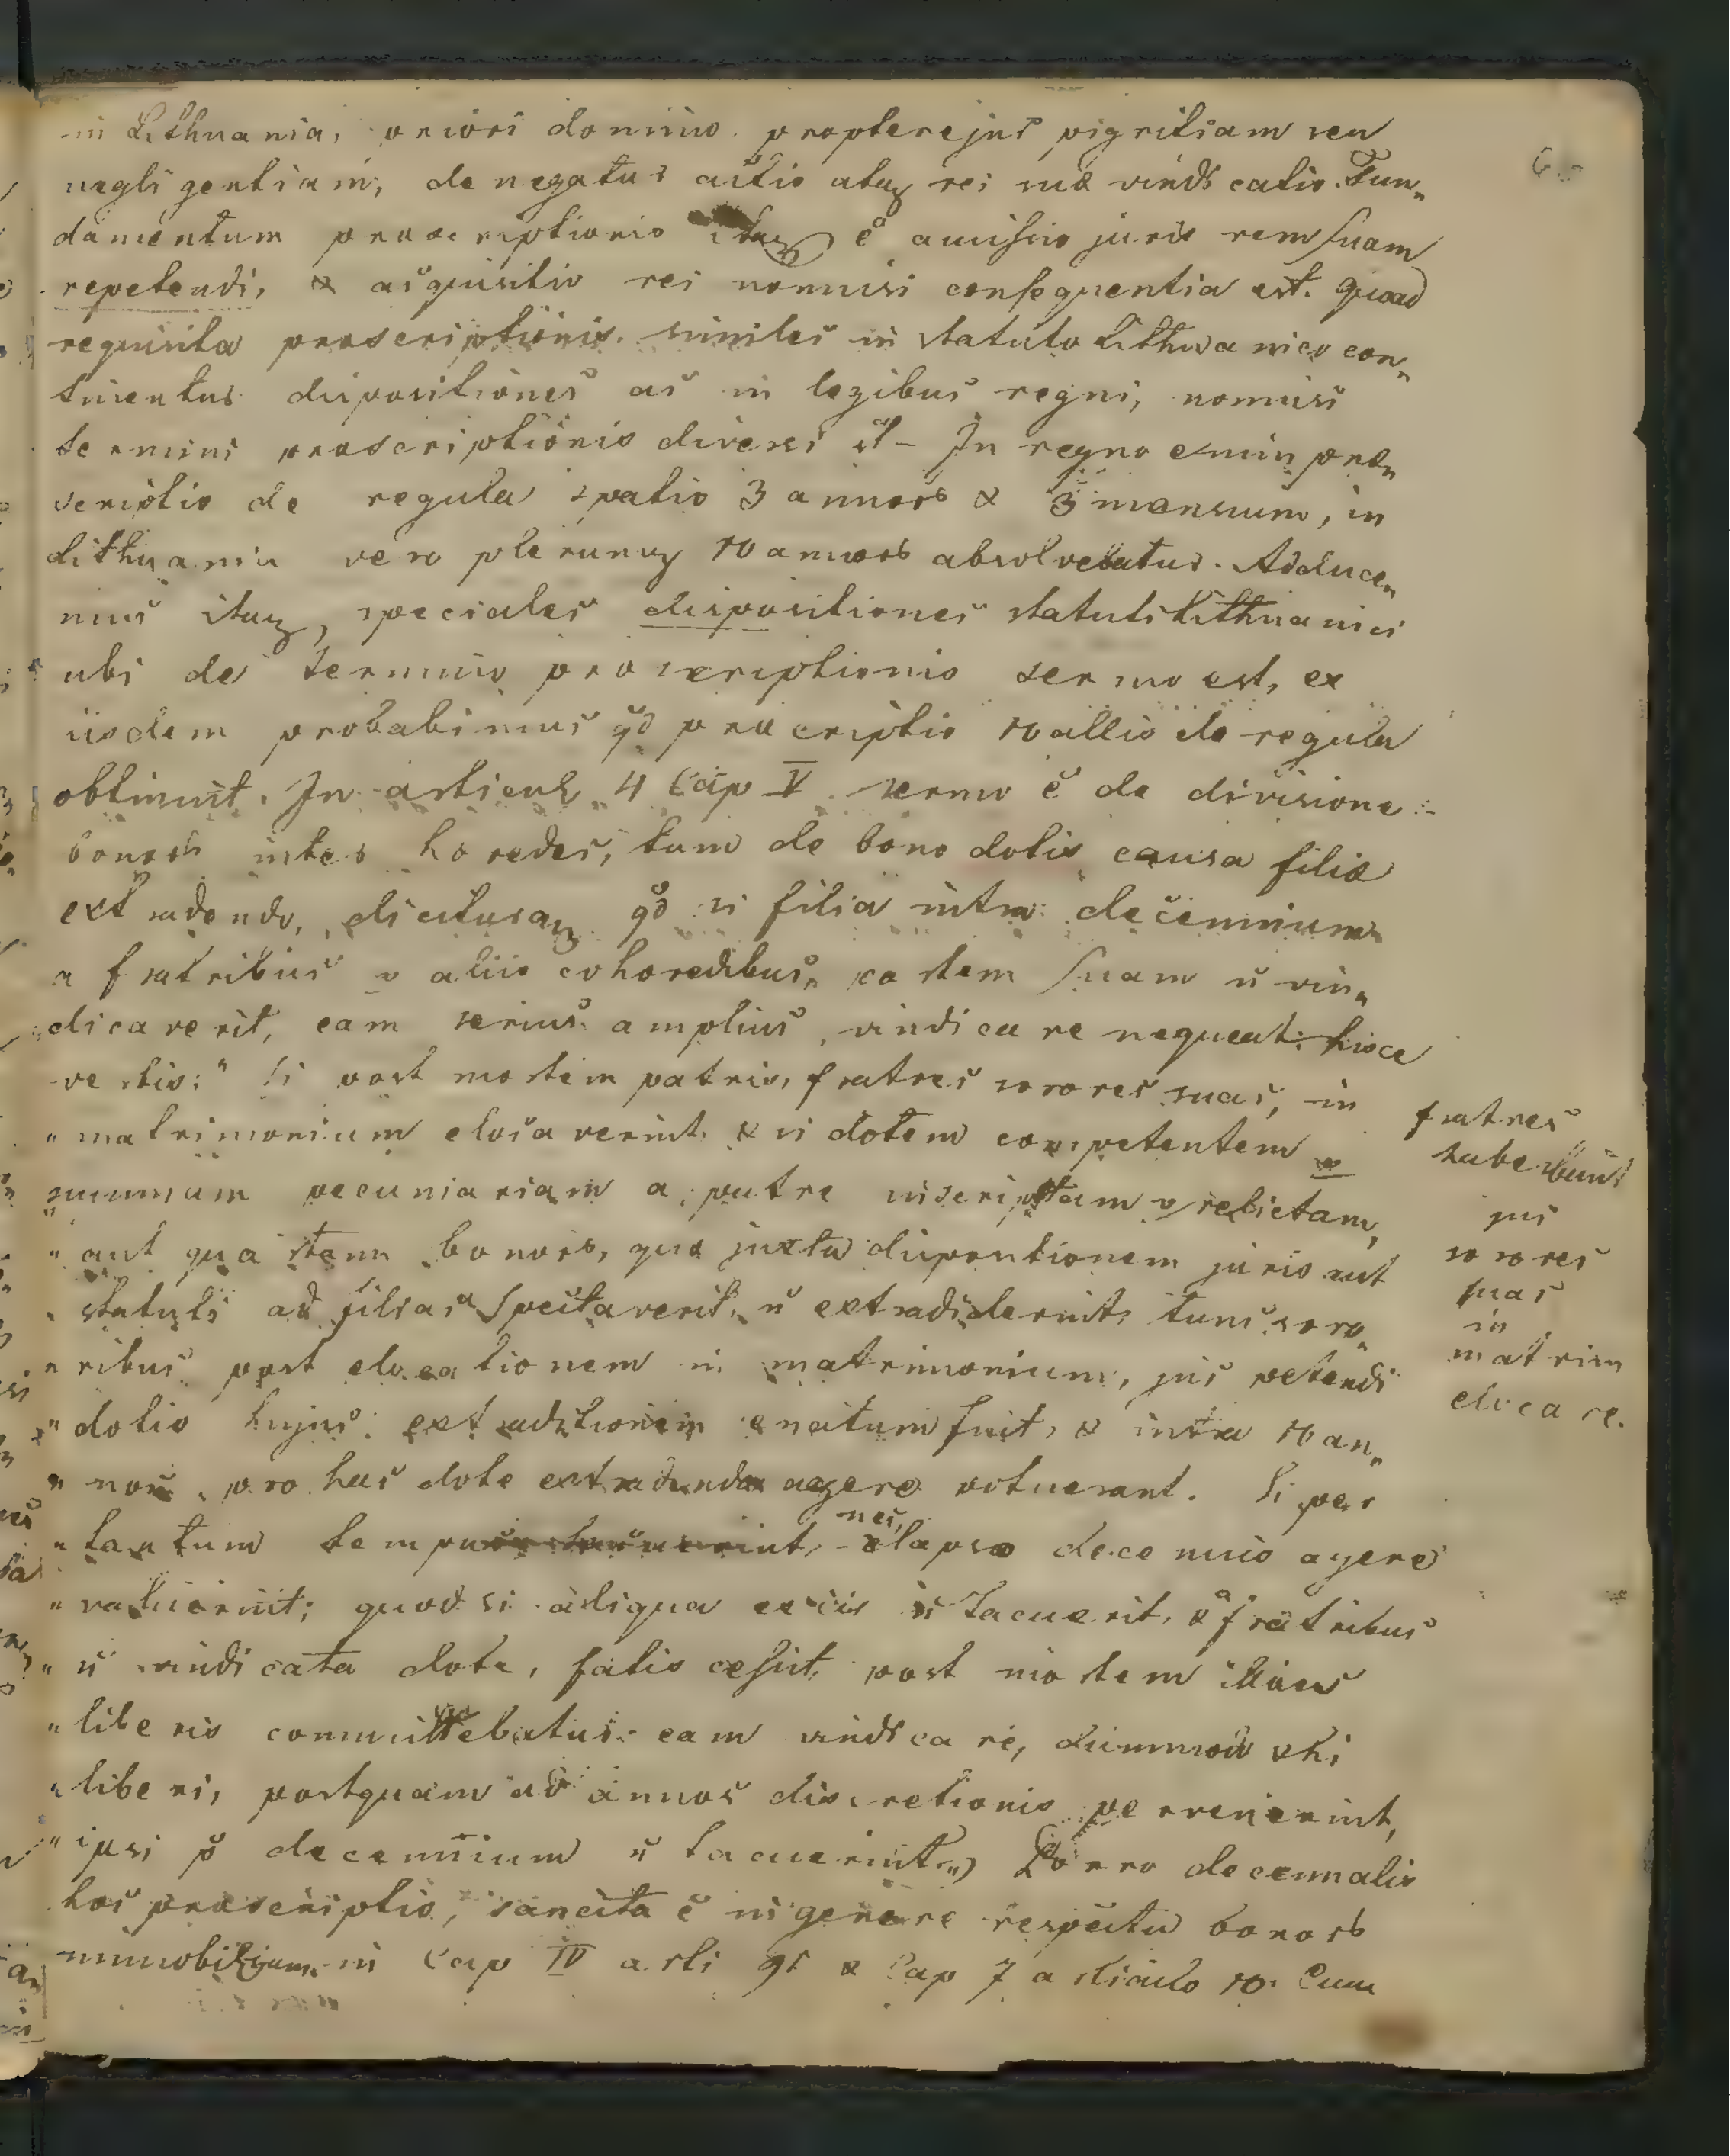 in Lithuania, priori domino propter ejus pigritiam seu
negligentiam, denegatur actio atq rei suæ vindicatio. Fun„
damentum præscriptionis itaq ē amissio juris rem suam
repetendi, & acquisitio rei nonnisi consequentia est. Quoad
requisita præscriptionis similes in statuto Lithuanico con„
tinentur dispositiones ac in legibus regni, nonnisi
termini præscriptionis diversi st– In regno enim præ„
scriptio de regula spatio 3 annorb & 3 mensium, in
Lithuania vero plerunq 10 annorb absolvebatur. Adduce„
mus itaq, speciales dispositiones statuti Lithuanici
ubi de termino præscriptionis sermo est, ex
iisdem probabimus qd præscriptio 10allis de regula
obtinuit. In articul 4 Cap V sermo ē de divisione
bonorb inter hæredes, tum de bono dotis causa filiæ
extradendo, diciturq qd si filia intra decennium
a fratribus v aliis cohæredibus, partem suam n̄ vin„
dicaverit, eam serius amplius vindicare nequeat: hisce
verbis: " Si post mortem patris, fratres sorores suas, in
" matrimonium elocaverint, & si dotem competentem v
" summam pecuniariam a patre inscriptam v relictam,
" aut quartam bonorb, quæ juxta dispositionem juris aut
" statuti ad filias spectaverit, n̄ extradiderint, tunc soro„
" ribus post elocationem in matrimonium, jus petendi
" dotis hujus extraditionem enatum fuit, & intra 10 an„
" nos pro hac dote extradenda agere potuerant. Si per
" tantum tempus tacuerint, nec, elapso decennio agere
" valuerint; quod si aliqua ex iis n̄ tacuerit, & a fratribus
" n̄ vindicata dote, fatis cessit, post mortem illius
" liberis committebatur eam vindicare, dummodo & hi
" liberi, postquam ad annos discretionis pervenerint,
" ipsi p̄ decennium n̄ tacuerint„ Porro decennalis
hæc præscriptio, sancita ē in genere respectu bonorb
immobilium in Cap IV arti 91 & Cap 7 articulo 10. Cum
fratres
habebunt
jus
sorores
suas
in
matrim
elocare.